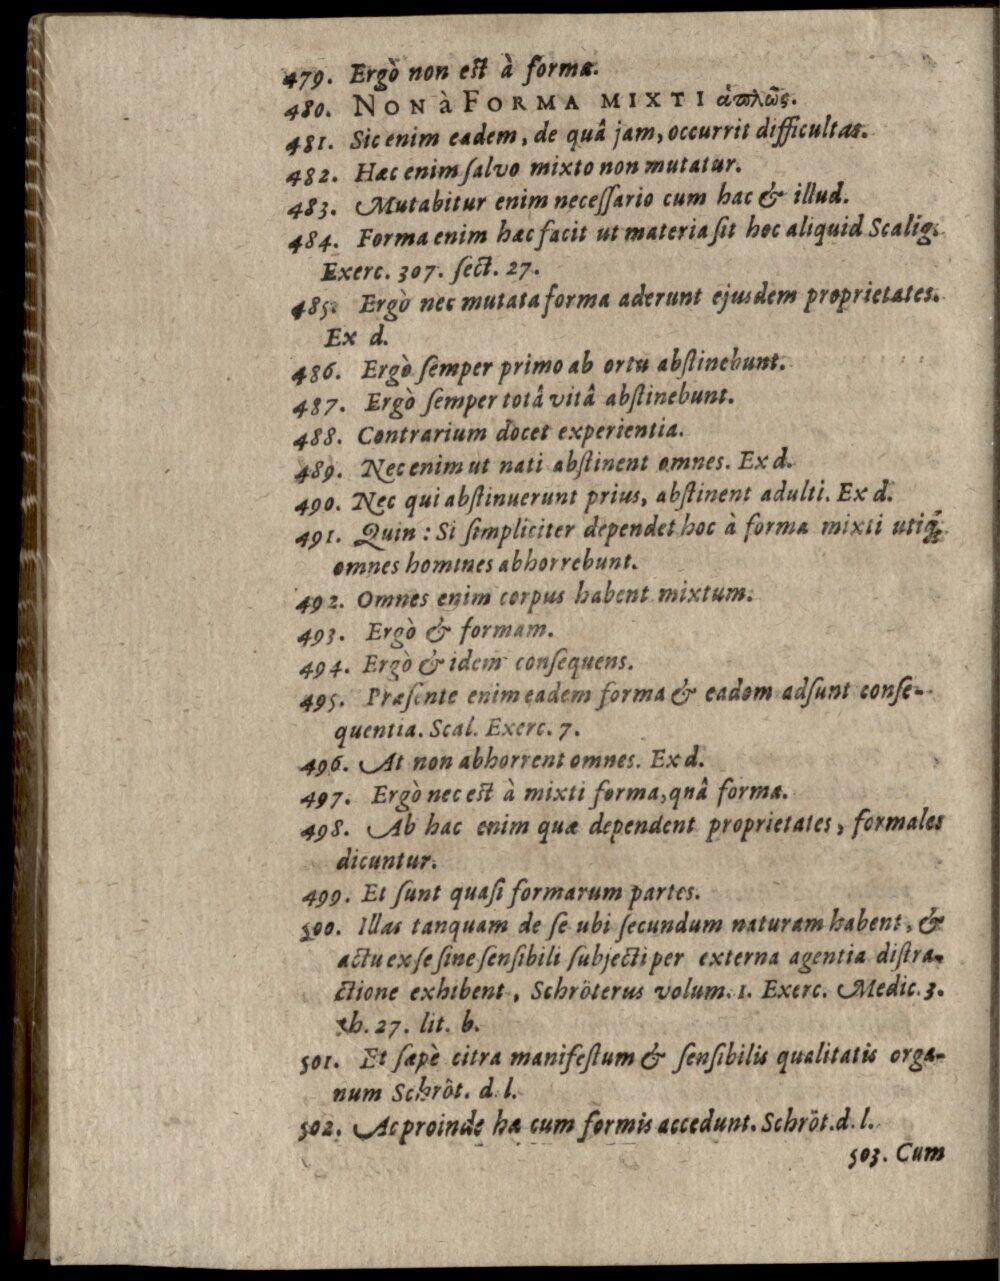 479. Ergò non eſt à forma.
480. NON à FORMA MIXTI ἁπλῶς.
481. Sic enim eadem, de quâ jam, occurrit difficultas.
482. Hæc enim ſalvo mixto non mutatur.
483. Mutabitur enim neceſſario cum hac & illud.
484. Forma enim hæc facit ut materia ſit hoc aliquid Scalig.
Exerc. 307. ſect. 27.
485. Ergò nec mutata forma aderunt ejusdem proprietates.
Ex d.
486. Ergò ſemper primo ab ortu abſtinebunt.
487. Ergò ſemper totâ vitâ abſtinebunt.
488. Contrarium docet experientia.
489. Nec enim ut nati abſtinent omnes. Ex d.
490. Nec qui abſtinuerunt prius, abſtinent adulti. Ex d.
491. Quin : Si ſimpliciter dependet hoc à forma mixti utiq́;
omnes homines abhorrebunt.
492. Omnes enim corpus habent mixtum.
493. Ergò & formam.
494. Ergò & idem conſequens.
495. Præſente enim eadem forma & eadem adſunt conſe-
quentia. Scal. Exerc. 7.
496. At non abhorrent omnes. Ex d.
497. Ergò nec eſt à mixti forma, quâ forma.
498. Ab hac enim quæ dependent proprietates, formales
dicuntur.
499. Et ſunt quaſi formarum partes.
500. Illas tanquam de ſe ubi ſecundum naturam habent, &
actu ex ſe ſine ſenſibili ſubjecti per externa agentia diſtra-
ctione exhibent, Schröterus volum. 1. Exerc. Medic. 3.
th. 27. lit. b.
501. Et ſæpè citra manifeſtum & ſenſibilis qualitatis orga-
num Schröt. d. l.
502. Ac proinde hæ cum formis accedunt. Schröt. d. l.
503. Cum